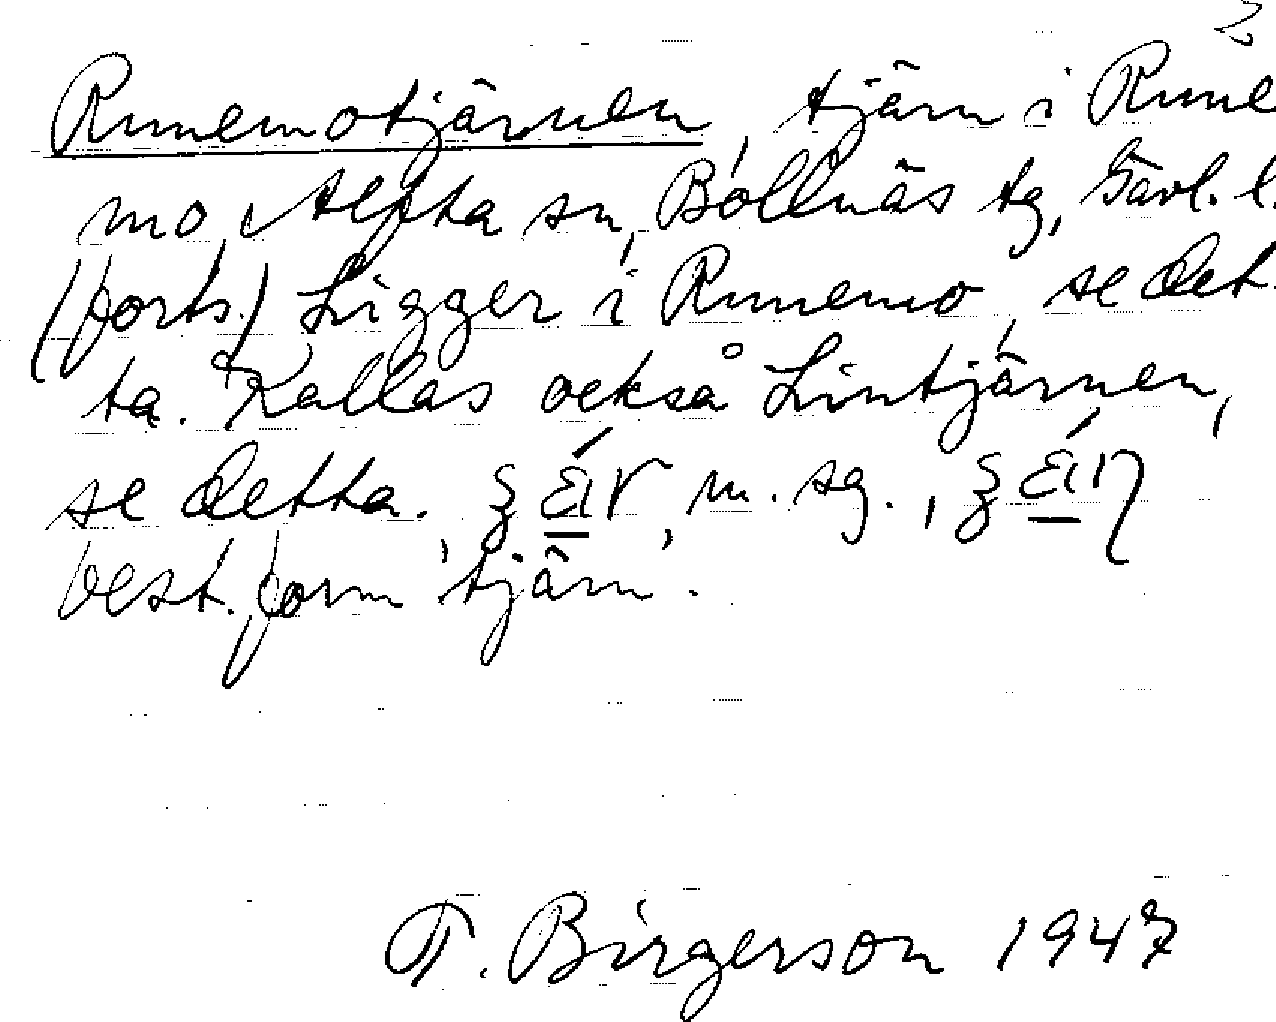 2
Runemotjärnen, tjärn i Rune
mo, Alfta sn, Bollnäs tg, Gävl. l.
(forts.) Ligger i Runemo, se det
ta. Kallas också Lintjärnen,
se detta. m. sg.,
best. form 'tjärn'.
T. Birgerson 1947